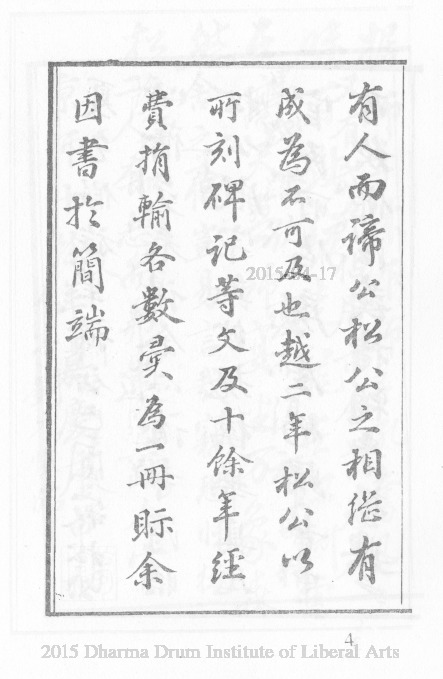 有人而諦公松公之相繼有
成為不可及也越二年松公以
所刻碑記等文及十餘年經
費捐輸各數彙為一冊眎余
因書於簡端
2015-04-17
4
2015 Dharma Drum Institute of Liberal Arts